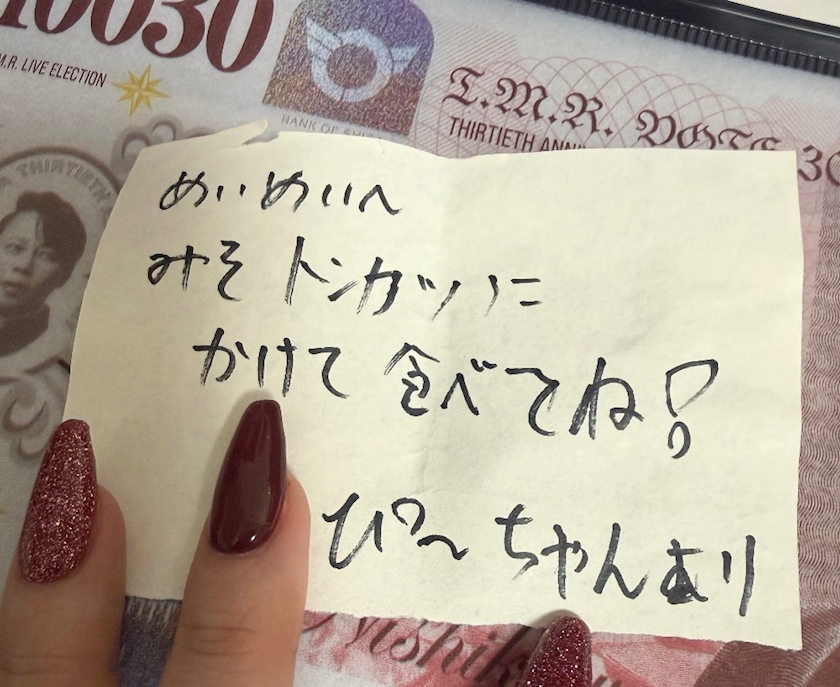 10030
M.R. LIVE ELECTION
BANK OF
T.M.R. VOTE 30
THIRTIETH ANNI
THIRTIETH
めいめいへ
みそ トンカツに
かけて 食べてね!
ぴ〜ちゃんより
Nishik